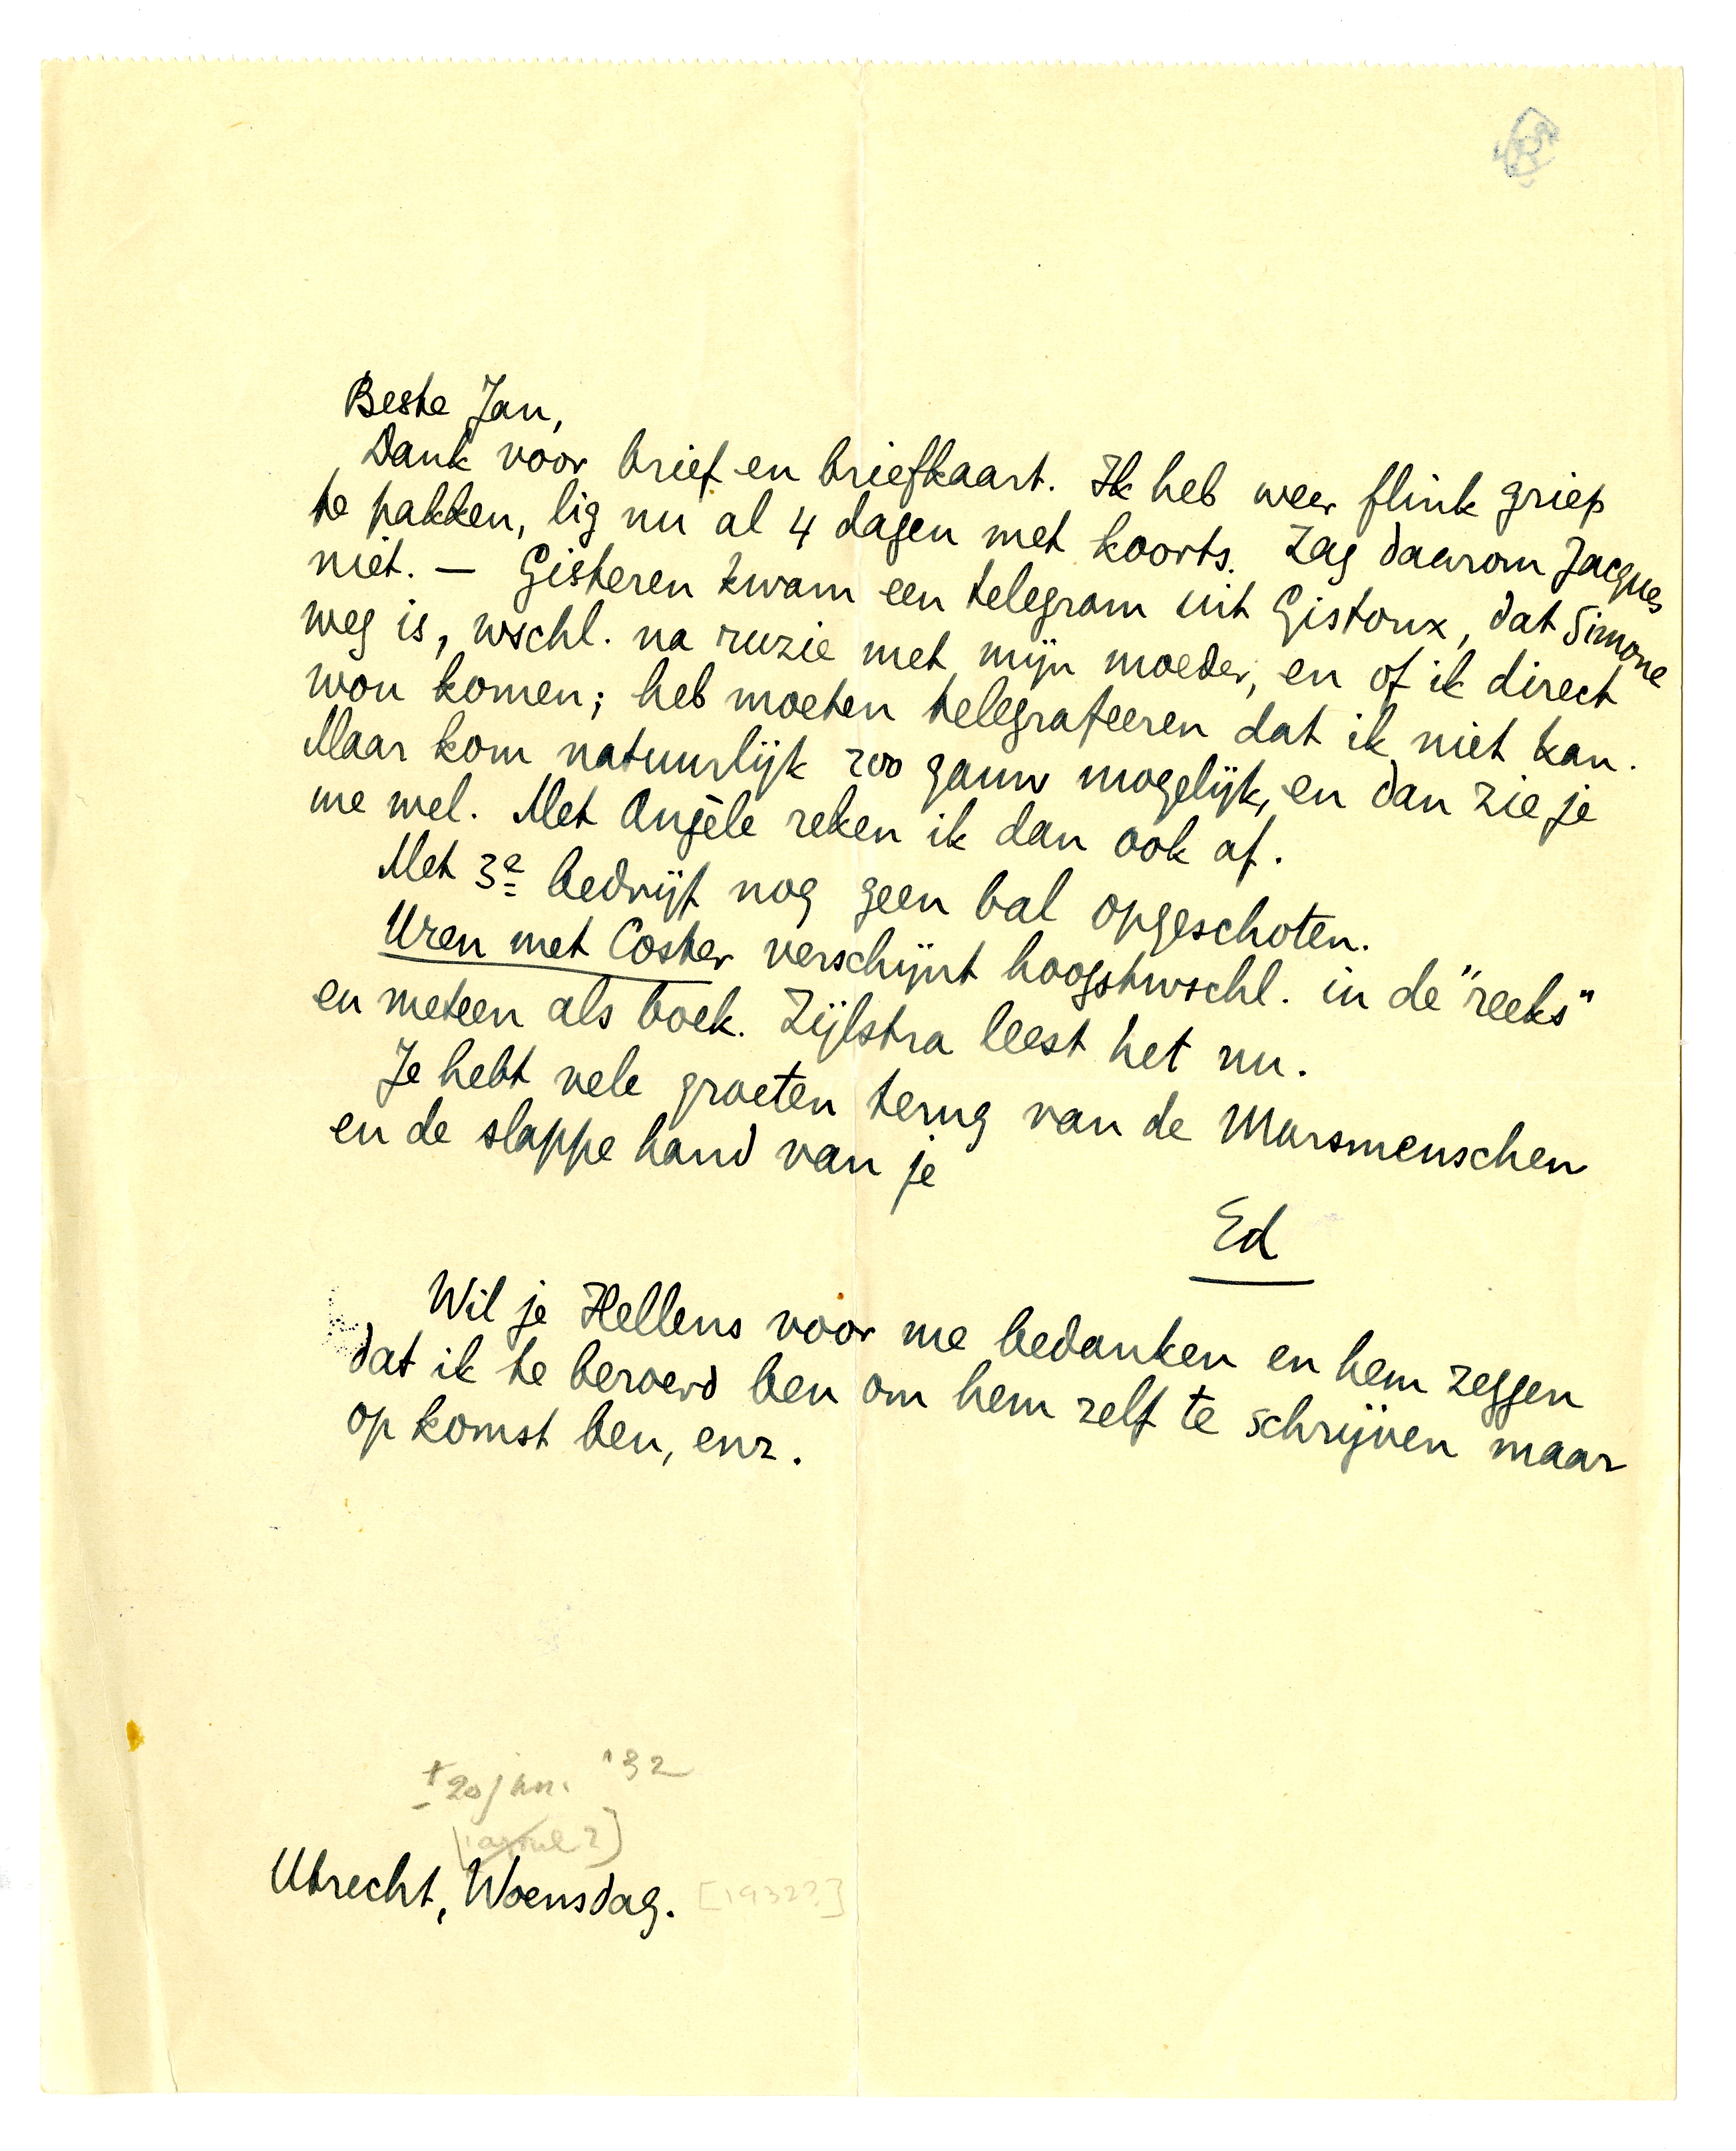 Beste Jan,
Dank voor brief en briefkaart. Ik heb weer flink griep
te pakken, lig nu al 4 dagen met koorts. Zag daarom Jacques
niet. — Gisteren kwam een telegram uit Gistoux, dat Simone
weg is, wschl. na ruzie met mijn moeder, en of ik direct
wou komen; heb moeten telegrafeeren dat ik niet kan.
Maar kom natuurlijk zoo gauw mogelijk, en dan zie je
me wel. Met Angèle reken ik dan ook af.
Met 3e bedrijf nog geen bal opgeschoten.
Uren met Coster verschijnt hoogstwschl. in de "reeks"
en meteen als boek. Zijlstra leest het nu.
Je hebt vele groeten terug van de Marsmenschen
en de slappe hand van je
Ed
Wil je Hellens voor me bedanken en hem zeggen
dat ik te beroerd ben om hem zelf te schrijven maar
op komst ben, enz.
± 20 jan. '32
Utrecht, Woensdag. [1932?]